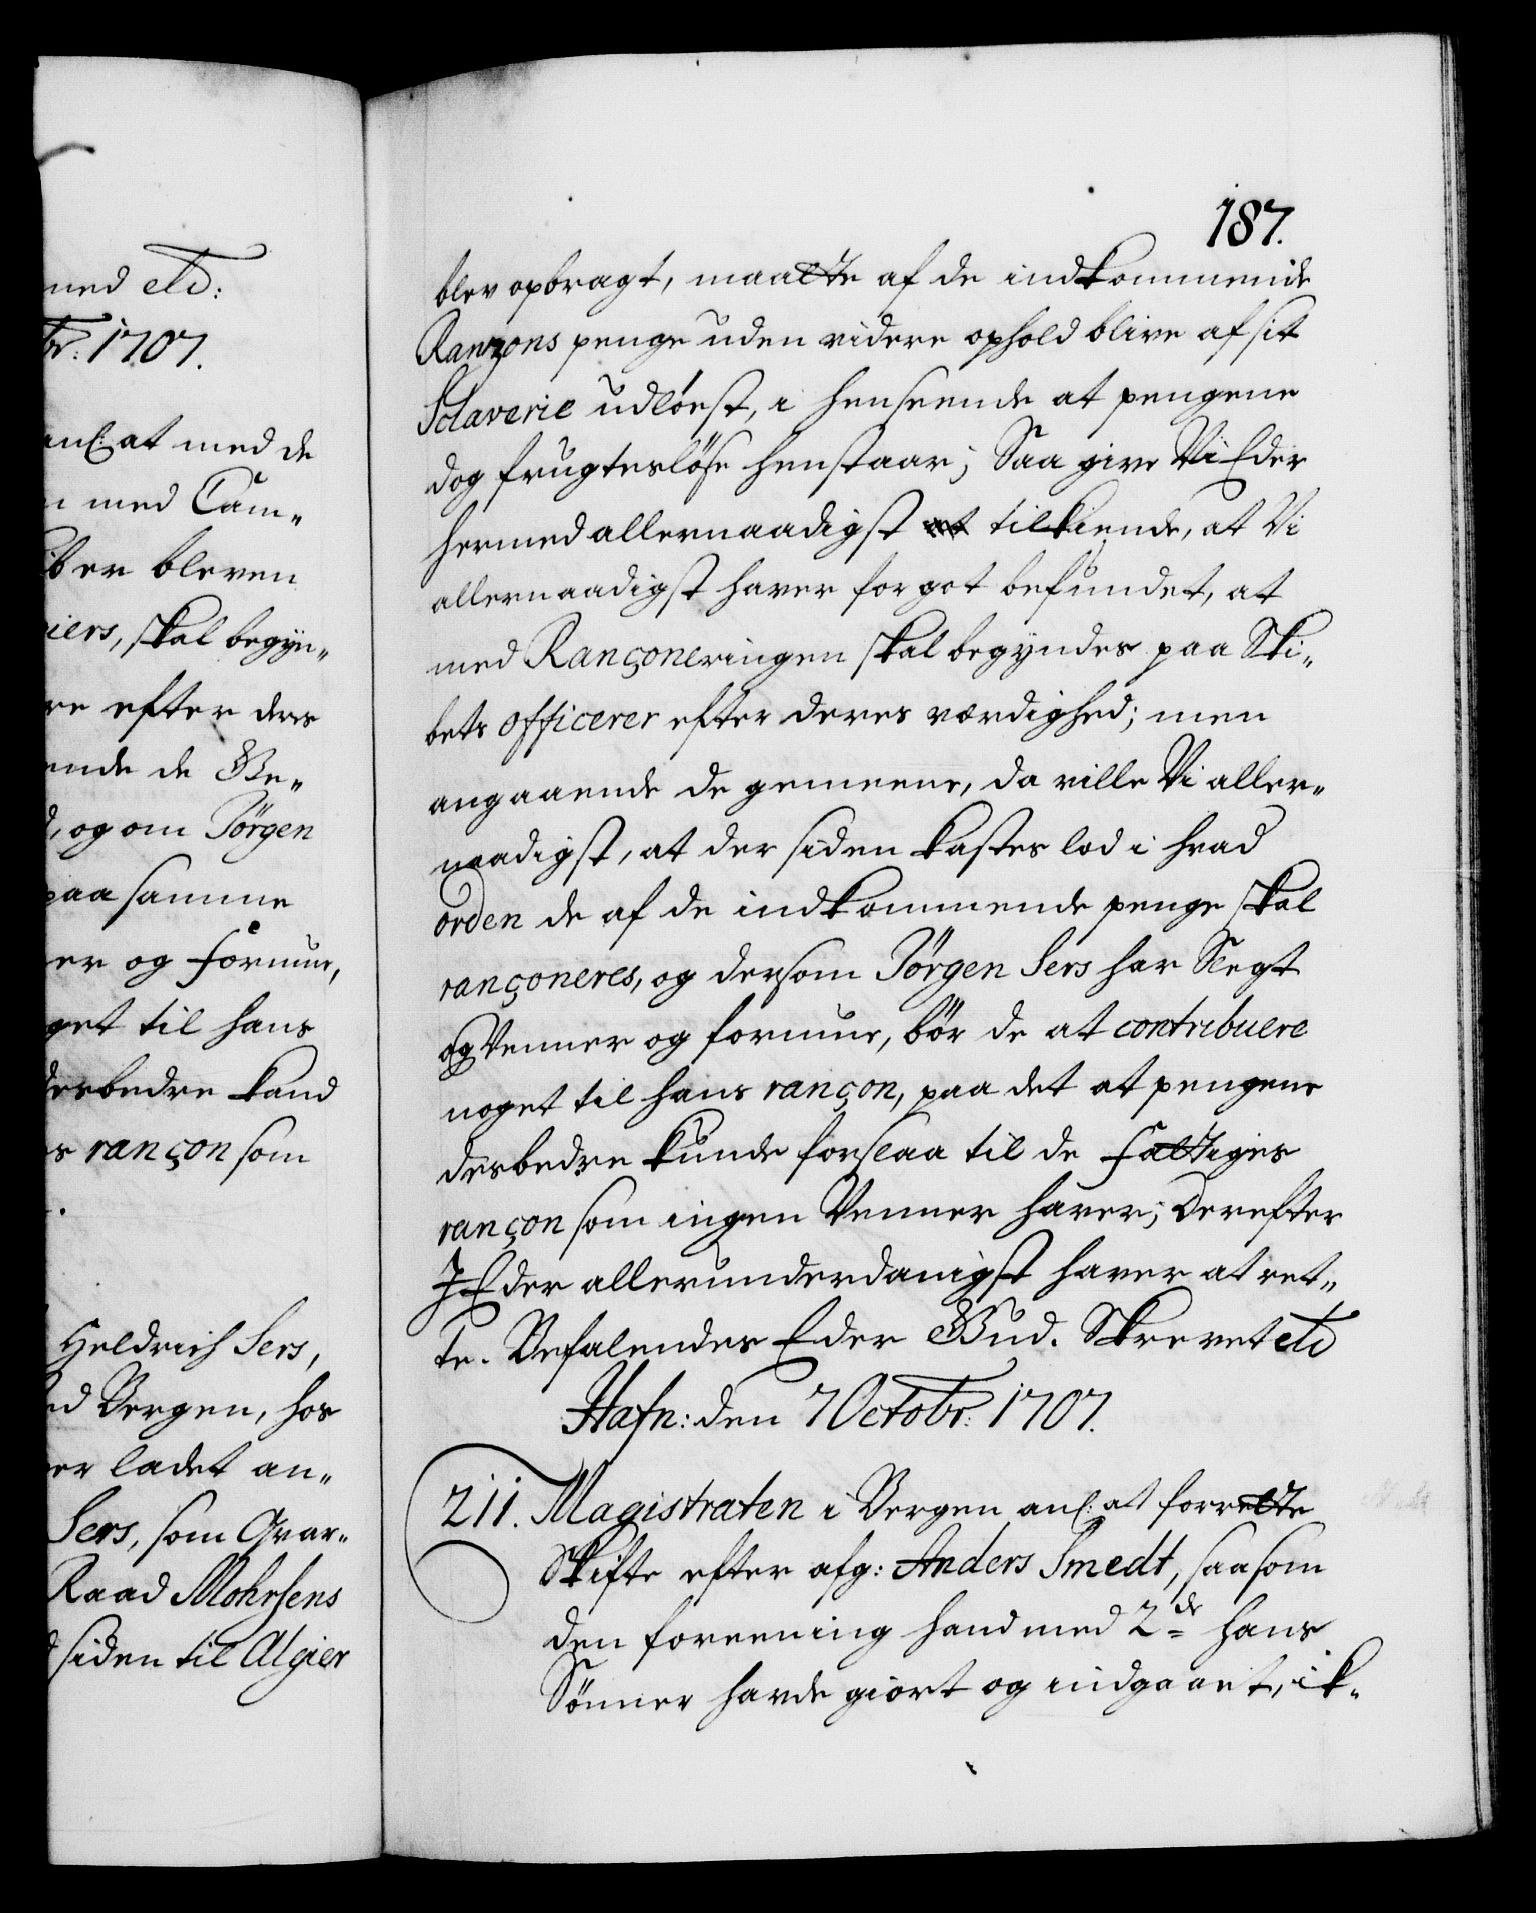 med etc:
br: 1707.
anl: at med de
n med Cam„
ib er bleven
iers, skal begyn„
re efter deres
ende de Ge„
d, og om Jörgen
paa samme
er og formue,
get til hans
desbedre kand
s rançon som
Heldrich Sers,
ed Bergen, hos
er ladet an„
Sers, som Qvar„
Raad Mohrsens
d siden til Algier
187.
blev opbragt, maatte af de indkommende
Ranzons penge uden videre ophold blive af sit
Sclaverie udlöest, i henseende at pengene
dog frugtesløse henstaar; Saa give Vi Eder
hermed allernaadigst at tilkiende, at Vi
allernaadigst haver for got befundet, at
med Rançoneringen skal begyndes paa Ski„
bets officerer efter deres værdighed; men
angaaende de gemeene, da ville Vi aller„
naadigst, at der siden kastes lod i hvad
orden de af de indkommende penge skal
rançoneres, og dersom Jörgen Sers har Slegt
og Venner og formue, bör de at contribuere
noget til hans rançon, paa det at pengene
desbedre kunde forslaa til de fattiges
rançon som ingen Venner haver; Derefter
I Eder allerunderdanigst haver at ret„
te. Befalendes Eder Gud. Skrevet etc
Hafn: den 7 Octobr: 1707.
211. Magistraten i Bergen anl: at forrette
Skifte efter afg: Anders Smedt, saasom
den foreening hand med 2de hans
Sönner havde giort og indgaaet, ik„